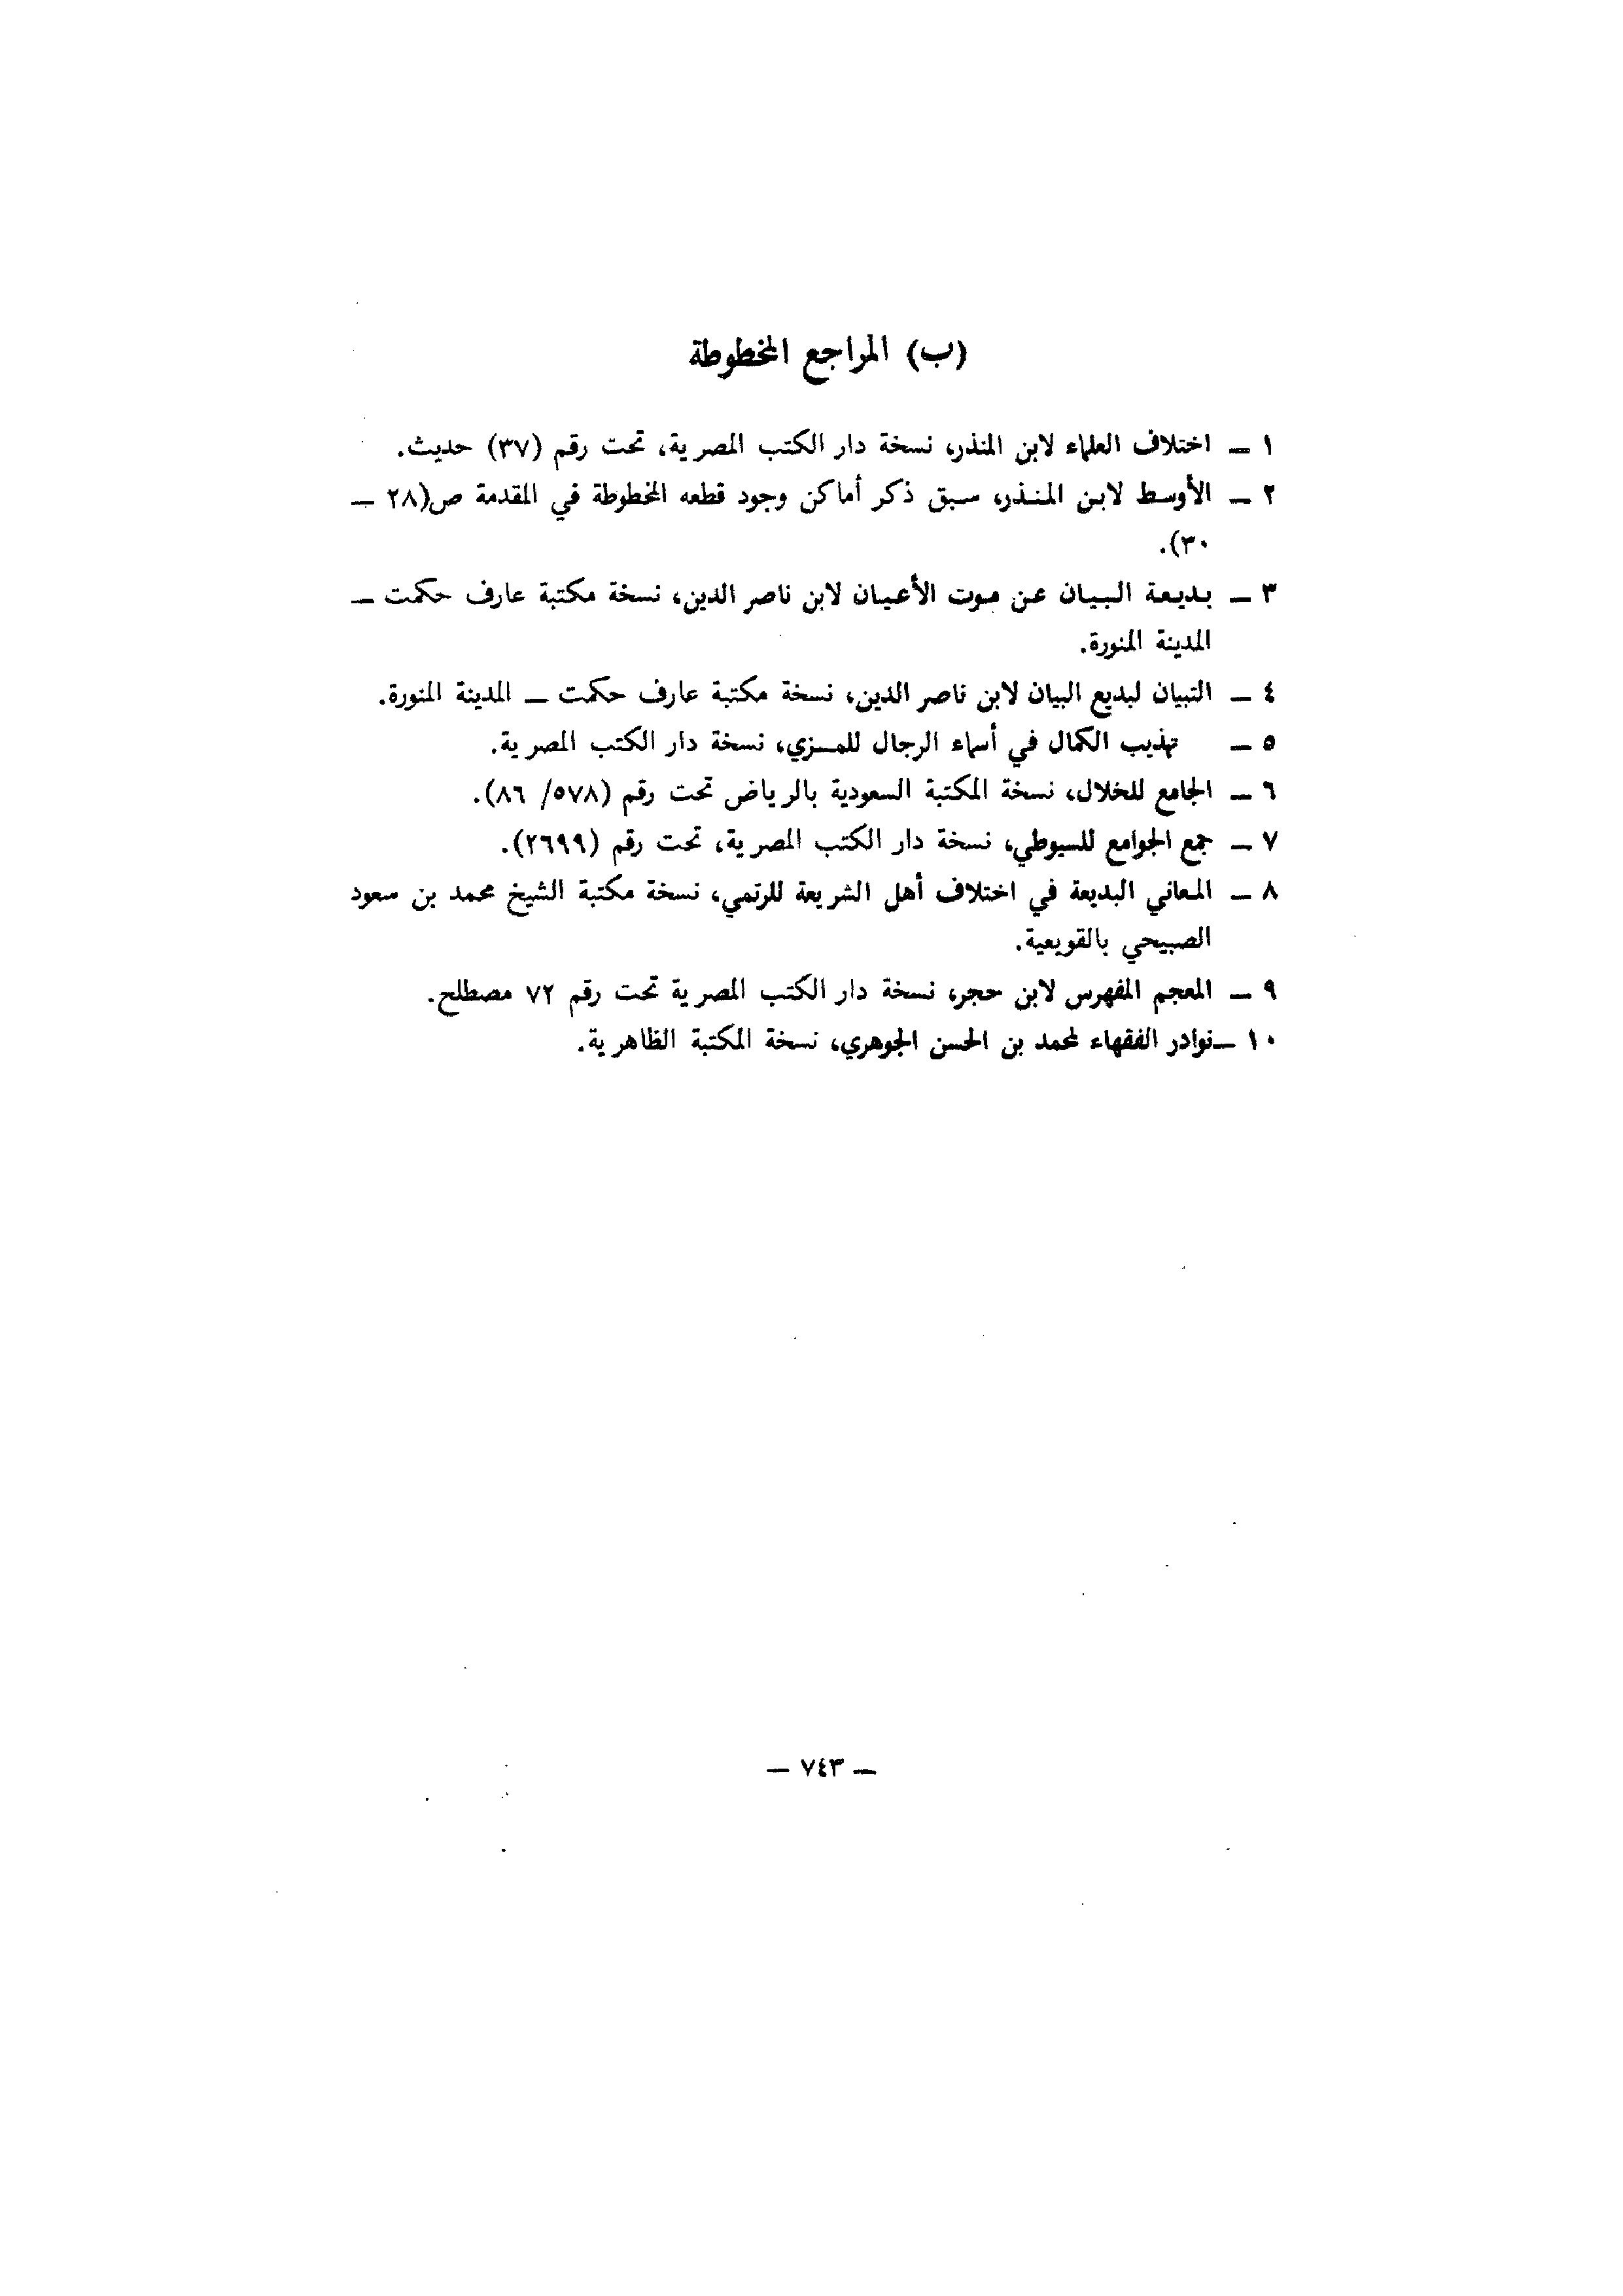 (ب) المراجع المخطوطة
١ ــ اختلاف العلماء لابن المنذر، نسخة دار الكتب المصرية، تحت رقم (٣٧) حديث.
٢ ــ الأوسط لابن المنذر، سبق ذكر أماكن وجود قطعه المخطوطة في المقدمة ص(٢٨ ــ
٣٠).
٣ ــ بديعة البيان عن موت الأعيان لابن ناصر الدين، نسخة مكتبة عارف حكمت ــ
المدينة المنورة.
٤ ــ التبيان لبديع البيان لابن ناصر الدين، نسخة مكتبة عارف حكمت ــ المدينة المنورة.
٥ ــ تهذيب الكمال في أسماء الرجال للمزي، نسخة دار الكتب المصرية.
٦ ــ الجامع للخلال، نسخة المكتبة السعودية بالرياض تحت رقم (٥٧٨/ ٨٦).
٧ ــ جمع الجوامع للسيوطي، نسخة دار الكتب المصرية، تحت رقم (٢٦٩٩).
٨ ــ المعاني البديعة في اختلاف أهل الشريعة للرتمي، نسخة مكتبة الشيخ محمد بن سعود
الصبيحي بالقويعية.
٩ ــ المعجم المفهرس لابن حجر، نسخة دار الكتب المصرية تحت رقم ٧٢ مصطلح.
١٠ ــ نوادر الفقهاء لمحمد بن الحسن الجوهري، نسخة المكتبة الظاهرية.
ــ ٧٤٣ ــ